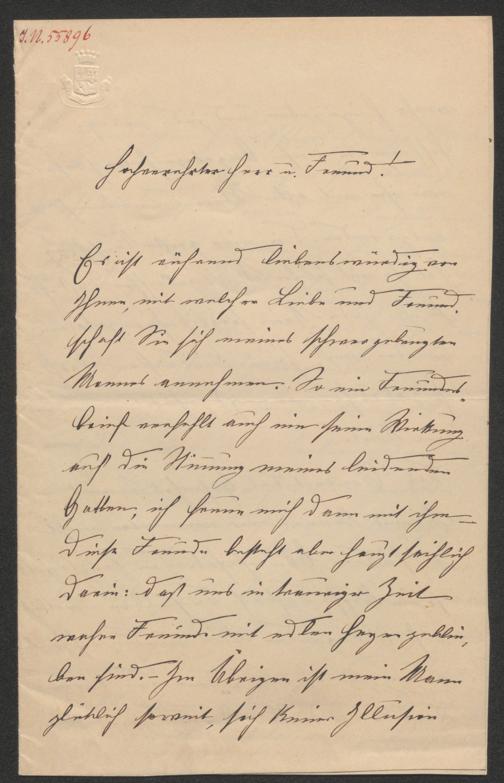 J.N. 55896
Hochverehrter Herr u. Freund!
Es ist rührend liebenswürdig von
Ihnen, mit welcher Liebe und Freund-
schaft Sie sich meines schwergeprüften
Mannes annehmen. So ein Freundes-
brief verfehlt auch nie seine Wirkung
auf die Stimmung meines leidenden
Gatten, ich freue mich dann mit ihm –
diese Freude besteht aber hauptsächlich
darin: daß uns in trauriger Zeit
wahre Freunde mit edlen Herzen geblie-
ben sind. – Im Übrigen ist mein Mann
plötzlich soweit, sich keiner Illusion